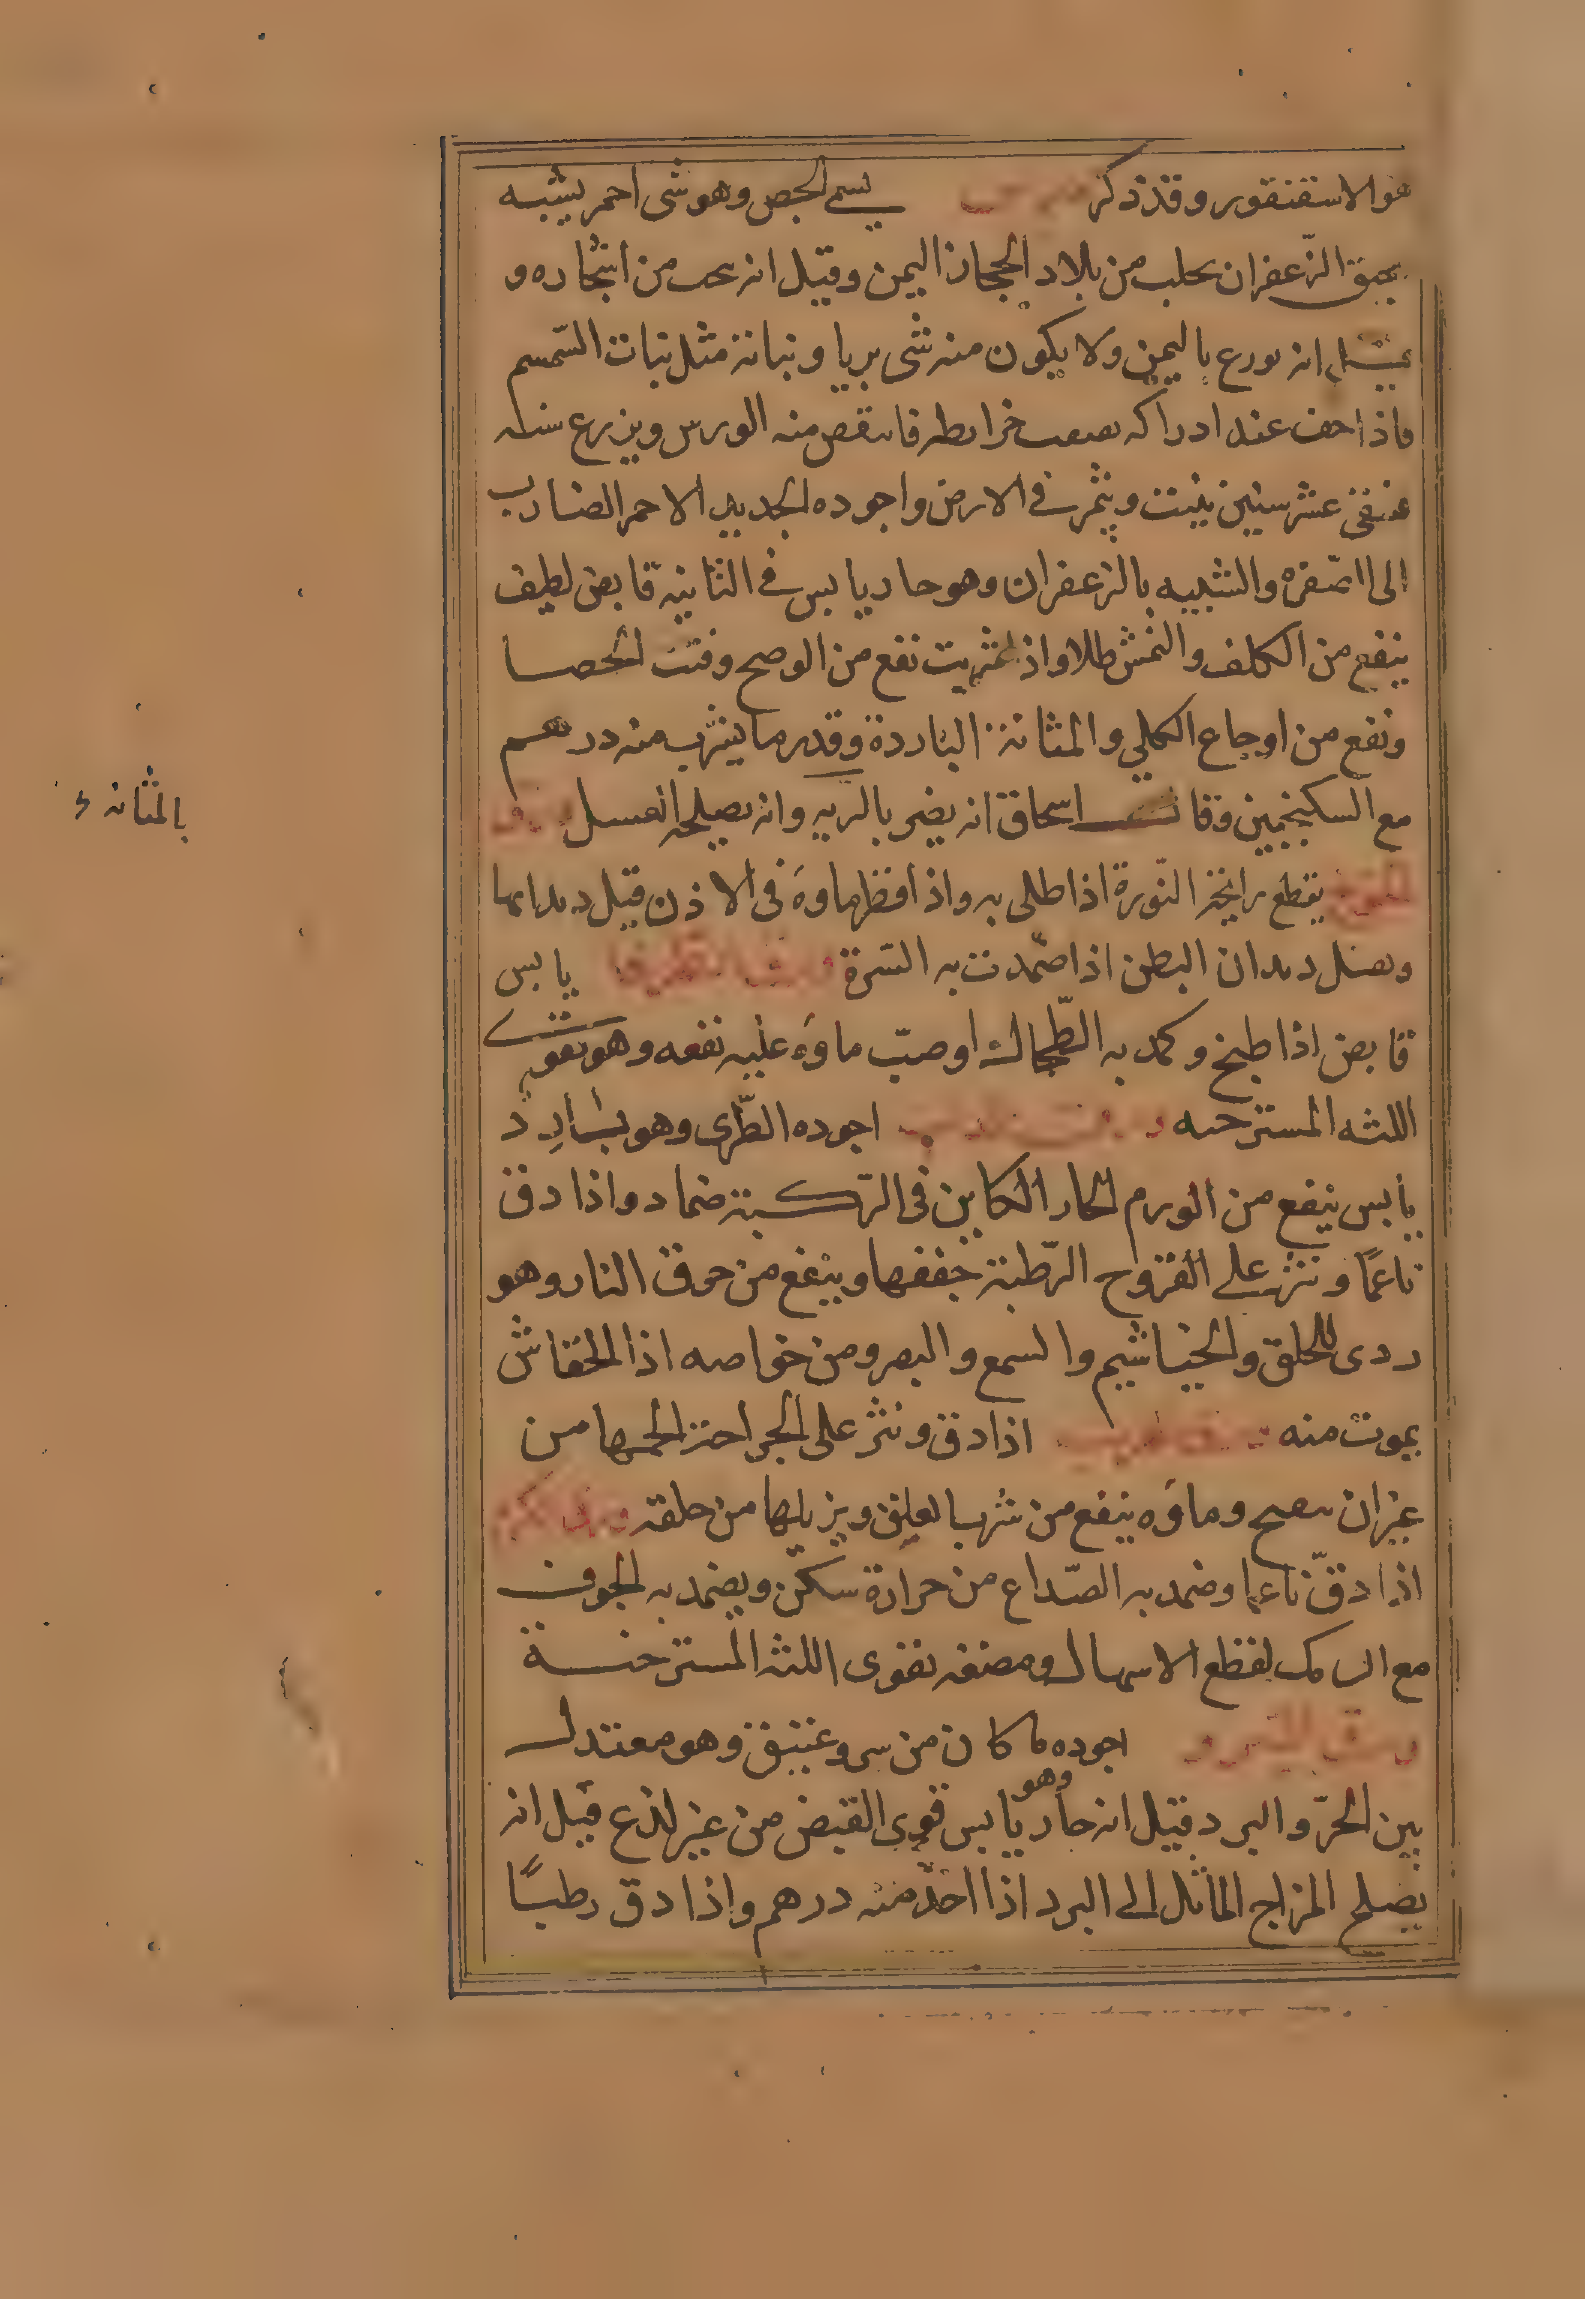 هو الاسقنقور وقد ذكر ورس يسمى الحص وهو شى احمر يشبه
سحيق الزعفران يجلب من بلاد الحجاز اليمن وقيل انه يحت من اشجاره و
قيل انه يزرع باليمن ولا يكون منه شى بريا ونباته مثل نبات السمسم
فاذا جف عند ادراكه تفتت خرايطه فانتقص منه الورس ويزرع سنه
فيبقى عشر سنين ينبت ويثمر فى الارض واجوده الجديد الاحمر الضارب
الى الصفره والشبيه بالزعفران وهو حار يابس فى الثانيه قابض لطيف
ينفع من الكلف والنمش طلا واذا شربت نفع من الوضح وفتت الحصا
ونفع من اوجاع الكلى والمثانة الباردة وقدر ما يشرب منه درهم
مع السكنجبين وقال اسحاق انه يضر بالريه وانه يصلحه العسل ورق
الخوخ يقطع رايحة النورة اذا طلى به واذا اقطر ماوه فى الاذن قتل ديدانها
وتقتل ديدان البطن اذا ضمدت به السرة ورق الطرفا يابس
قابض اذا طبخ وكمد به الطحال او صب ماوه عليه نفعه وهو يقوى
اللثه المسترخيه ورق الدلب اجوده الطرى وهو بارد
يابس ينفع من الورم الحار الكاين فى الركبة ضماد واذا دق
ناعمًا ونثر على القروح الرطبة جففها وينفع من حرق النار وهو
ردى للحلق والخياشيم والسمع والبصر ومن خواصه اذا الخفاش
يموت منه اذا دق ونثر على الجراحة الحمها من
غير ان تتقيح وماوه ينفع من شرب العلق ويزيلها من حلقه
اذا دق ناعما وضمد به الصداع من حرارة سكن ويضمد به الجوف
مع الرامك لقطع الاسهال ومضغه يقوى اللثه المسترخية
ورق السرو اجوده ما كان من سرو عتيق وهو معتدل
بين الحر والبرد وقيل انه حار وهو يابس قوى القبض من غير لذع قيل انه
يصلح المزاج المائل الى البرد اذا اخذ منه درهم واذا دق رطبًا
بالمثانه